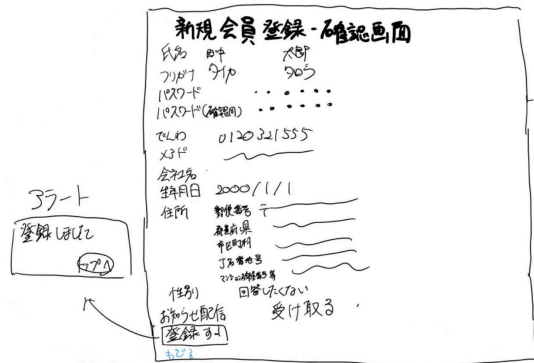 新規会員登録-確認画面
氏名 田中 太郎
フリガナ タナカ タロウ
パスワード
パスワード(確認用)
でんわ 0120321555
メアド
会社名
生年月日 2000/1/1
住所 郵便番号 〒
都道府県
市区町村
丁目番地号
性別 回答したくない
お知らせ配信 受け取る
登録する
もどる
アラート
登録しました
トップへ